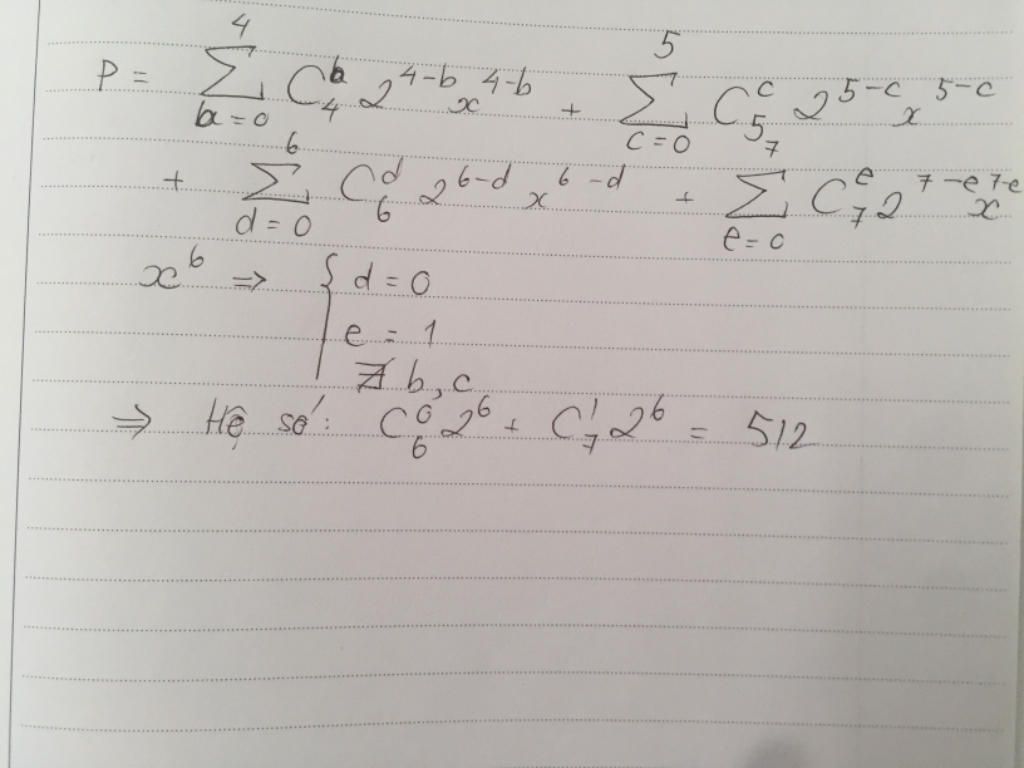 P = \sum_{b=0}^{4} C_4^b 2^{4-b} x^{4-b} + \sum_{c=0}^{5} C_5^c 2^{5-c} x^{5-c}
+ \sum_{d=0}^{6} C_6^d 2^{6-d} x^{6-d} + \sum_{e=0}^{7} C_7^e 2^{7-e} x^{7-e}
x^6 ⇒ { d = 0
e = 1
∄ b, c
⇒ Hệ số: C_6^0 2^6 + C_7^1 2^6 = 512